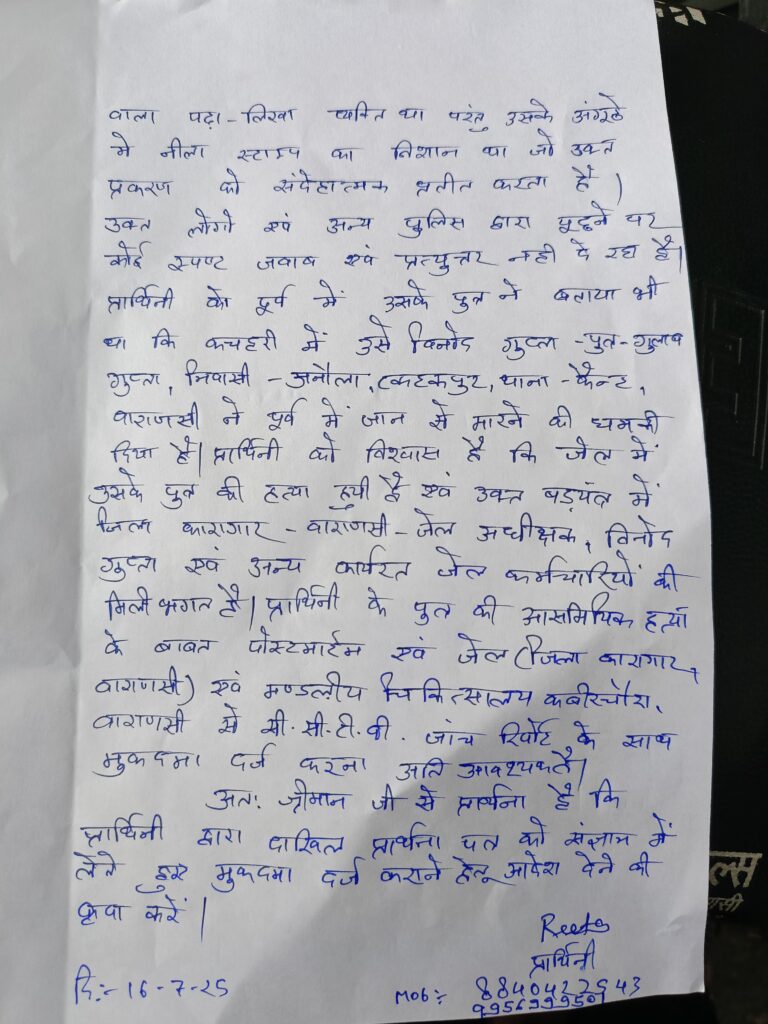 वाला पढ़ा-लिखा व्यक्ति था परंतु उसके अंगूठे
मे नीला स्टाम्प का निशान था जो उक्त
प्रकरण को संदेहात्मक प्रतीत करता है |
उक्त लोगो एवं अन्य पुलिस द्वारा पूछने पर
कोई स्पष्ट जवाब एवं प्रत्युत्तर नही दे रहा है|
प्रार्थिनी को पूर्व में उसके पुत्र ने बताया भी
था कि कचहरी में उसे विनोद गुप्ता -पुत्र-गुलाब
गुप्ता, निवासी -अनौला, थाना -कैन्ट,
वाराणसी ने पूर्व में जान से मारने की धमकी
दिया है| प्रार्थिनी को विश्वास है कि जेल में
उसके पुत्र की हत्या हुयी है एवं उक्त षड़यंत्र में
जिला कारागार - वाराणसी - जेल अधीक्षक, विनोद
गुप्ता एवं अन्य कार्यरत जेल कर्मचारियों की
मिली भगत है| प्रार्थिनी के पुत्र की हत्या
के बाबत पोस्टमार्टम एवं जेल (जिला कारागार,
वाराणसी) एवं मण्डलीय चिकित्सालय कबीरचौरा,
वाराणसी से सी.सी.टी.वी. जांच रिपोर्ट के साथ
मुकदमा दर्ज करना अति आवश्यक है|
अतः श्रीमान जी से प्रार्थना है कि
प्रार्थिनी द्वारा दाखिल प्रार्थना पत्र को संज्ञान में
लेते हुए मुकदमा दर्ज कराने हेतू आदेश देने की
कृपा करें |
Reeta
प्रार्थिनी
दि:- 16-7-25
Mob:-
ल्स